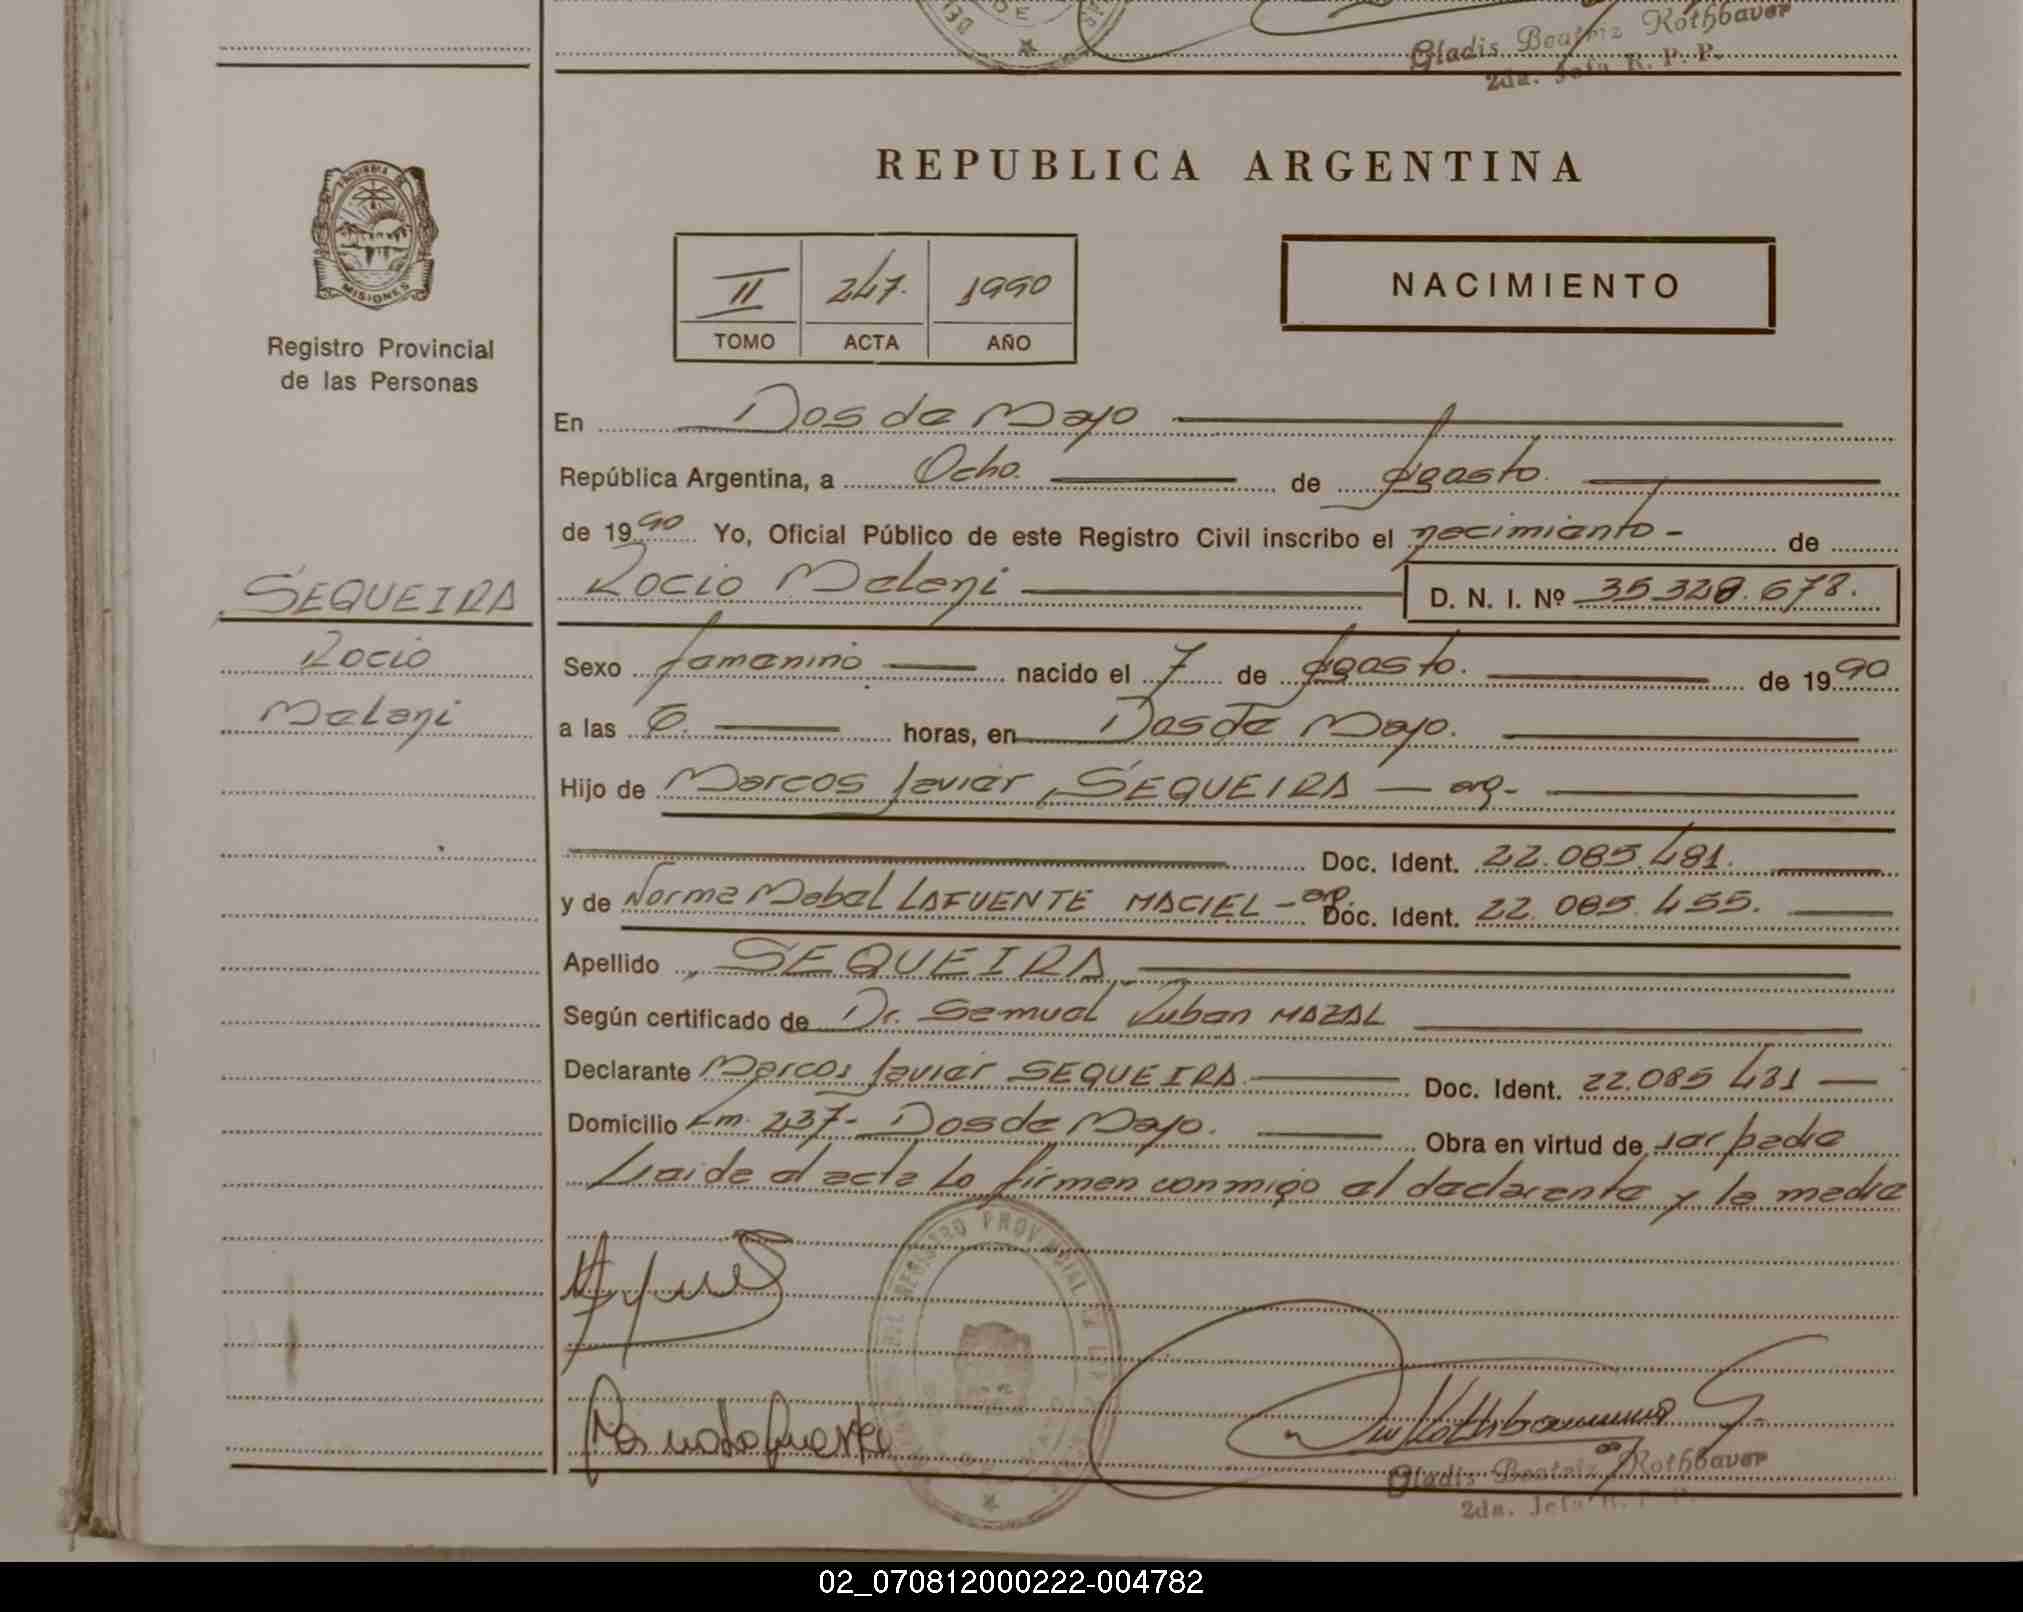 Gladis Beatriz Rothbaver
2da. Jefa R. P. P.
REPUBLICA ARGENTINA
PROVINCIA DE
MISIONES
Registro Provincial
de las Personas
II 247. 1990
TOMO ACTA AÑO
NACIMIENTO
En Dos de Mayo
República Argentina, a Ocho. de Agosto.
de 1990 Yo, Oficial Público de este Registro Civil inscribo el necimiento - de
SEQUEIRA
Rocio Meleni D. N. I. Nº 35.328.678.
Rocio
Meleni
Sexo femenino nacido el 7 de Agosto. de 1990
a las 6. horas, en Dos de Mayo.
Hijo de Marcos Javier SEQUEIRA — arg-
Doc. Ident. 22.085.481.
y de Norma Mabel LAFUENTE MACIEL - arg. Doc. Ident. 22.085.455.
Apellido SEQUEIRA
Según certificado de Dr. Samuel Ruben MAZAL
Declarante Marcos Javier SEQUEIRA Doc. Ident. 22.085 481
Domicilio Km. 237- Dos de Mayo. Obra en virtud de ser padre
Leide el acta lo firman conmigo el declarante y la madre
REGISTRO PROVINCIAL DE LAS
Gladis Beatriz Rothbaver
2da. Jefa R. P. P.
02_070812000222-004782